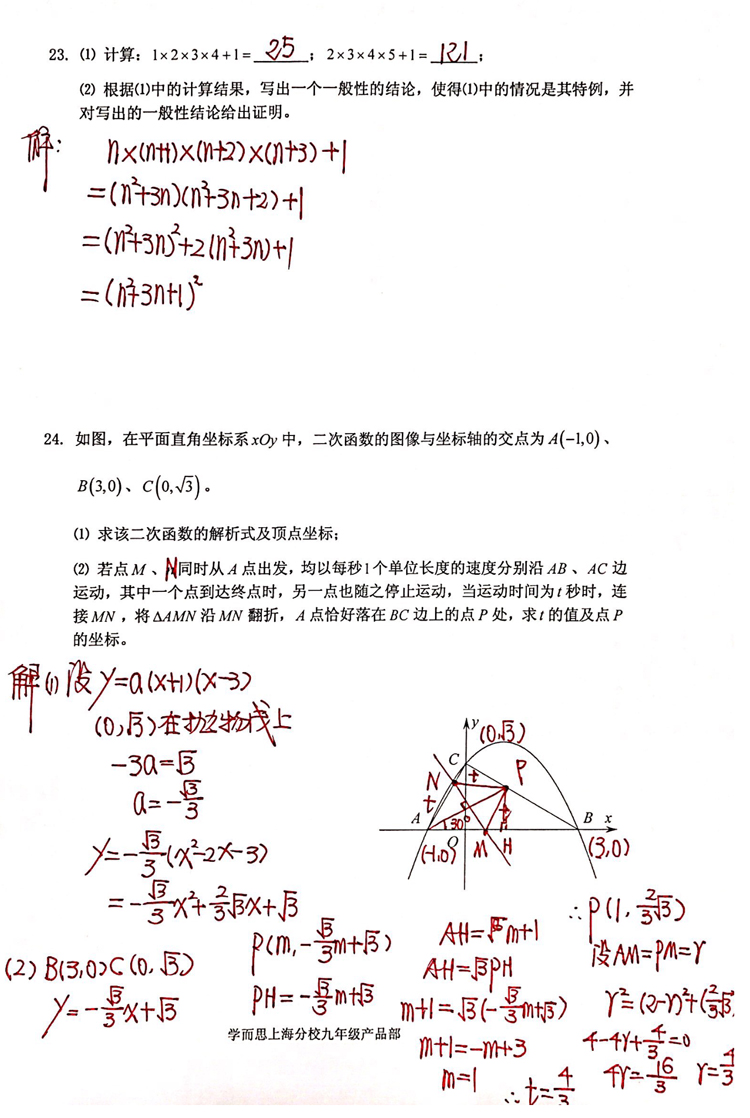 23. ⑴ 计算：1×2×3×4+1=25；2×3×4×5+1=121；
⑵ 根据⑴中的计算结果，写出一个一般性的结论，使得⑴中的情况是其特例，并
对写出的一般性结论给出证明。
解： n×(n+1)×(n+2)×(n+3)+1
=(n²+3n)(n²+3n+2)+1
=(n²+3n)²+2(n²+3n)+1
=(n²+3n+1)²
24. 如图，在平面直角坐标系xOy中，二次函数的图像与坐标轴的交点为A(−1,0)、
B(3,0)、C(0,√3)。
⑴ 求该二次函数的解析式及顶点坐标；
⑵ 若点M、N同时从A点出发，均以每秒1个单位长度的速度分别沿AB、AC边
运动，其中一个点到达终点时，另一点也随之停止运动，当运动时间为t秒时，连
接MN，将ΔAMN沿MN翻折，A点恰好落在BC边上的点P处，求t的值及点P
的坐标。
解(1) 设y=a(x+1)(x-3)
(0,√3)在抛物线上
-3a=√3
a=-√3/3
y=-√3/3(x²-2x-3)
=-√3/3x²+2/3√3x+√3
(2) B(3,0) C(0,√3)
y=-√3/3x+√3
y
(0,√3)
C
N
t
P
t
A
30°
B x
(-1,0)
O
M
H
(3,0)
P(m,-√3/3m+√3)
PH=-√3/3m+√3
AH=m+1
AH=√3PH
m+1=√3(-√3/3m+√3)
m+1=-m+3
m=1
∴P(1,2/3√3)
设AM=PM=r
r²=(2-r)²+(2/3√3
4-4r+4/3=0
4r=16/3 r=4/3
∴t=4/3
学而思上海分校九年级产品部